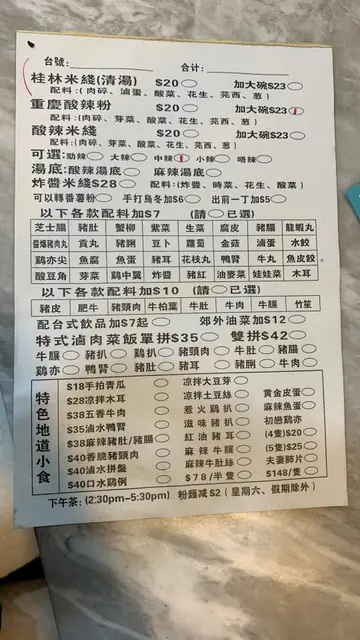 台號：________ 合計：________
桂林米綫(清湯) $20 加大碗$23
配料：(肉碎、滷蛋、酸菜、花生、芫西、葱)
重慶酸辣粉 $20 加大碗$23
配料：(肉碎、芽菜、酸菜、花生、芫西、葱)
酸辣米綫 $20 加大碗$23
配料：(肉碎、芽菜、酸菜、花生、芫西、葱)
可選：勁辣 大辣 中辣 小辣 唔辣
湯底：酸辣湯底 麻辣湯底
炸醬米綫$28 配料：(炸醬、時菜、花生、酸菜)
可以轉番薯粉 手打烏冬加$6 出前一丁加$5
以下各款配料加$7 (請 已選)
芝士腸 豬肚 蟹柳 紫菜 生菜 腐皮 豬腸 龍蝦丸
醬爆豬肉丸 貢丸 豬脷 豆卜 蘿蔔 金菇 滷蛋 水餃
鷄亦尖 魚腐 魚蛋 豬耳 花枝丸 鴨腎 牛丸 魚皮餃
酸豆角 芽菜 鷄中翼 炸醬 豬紅 油麥菜 娃娃菜 木耳
以下各款配料加$10 (請 已選)
豬皮 肥牛 豬頸肉 牛柏葉 牛肚 牛肉 牛腱 竹笙
配台式飲品加$7起 郊外油菜加$12
特式滷肉菜飯單拼$35 雙拼$42
牛腱 豬扒 鷄扒 豬頸肉 牛肚 豬腸
鷄亦 鴨腎 豬肚 豬耳 豬脷 牛肉
特色地道小食
$18手拍青瓜 涼拌大豆芽
$28涼拌木耳 涼拌土豆絲 黃金皮蛋
$38五香牛肉 惹火鷄扒 麻辣魚蛋
$35滷水鴨腎 滋味豬扒 初戀鷄亦
$38麻辣豬肚/豬腸 紅油豬耳 (4隻)$20
$40香脆豬頸肉 麻辣牛腱 (5隻)$25
$40滷水拼盤 麻辣牛肚絲 夫妻肺片
$40口水鷄例 $78/半隻 $148/隻
下午茶：(2:30pm–5:30pm) 粉麵减$2 (星期六、假期除外)